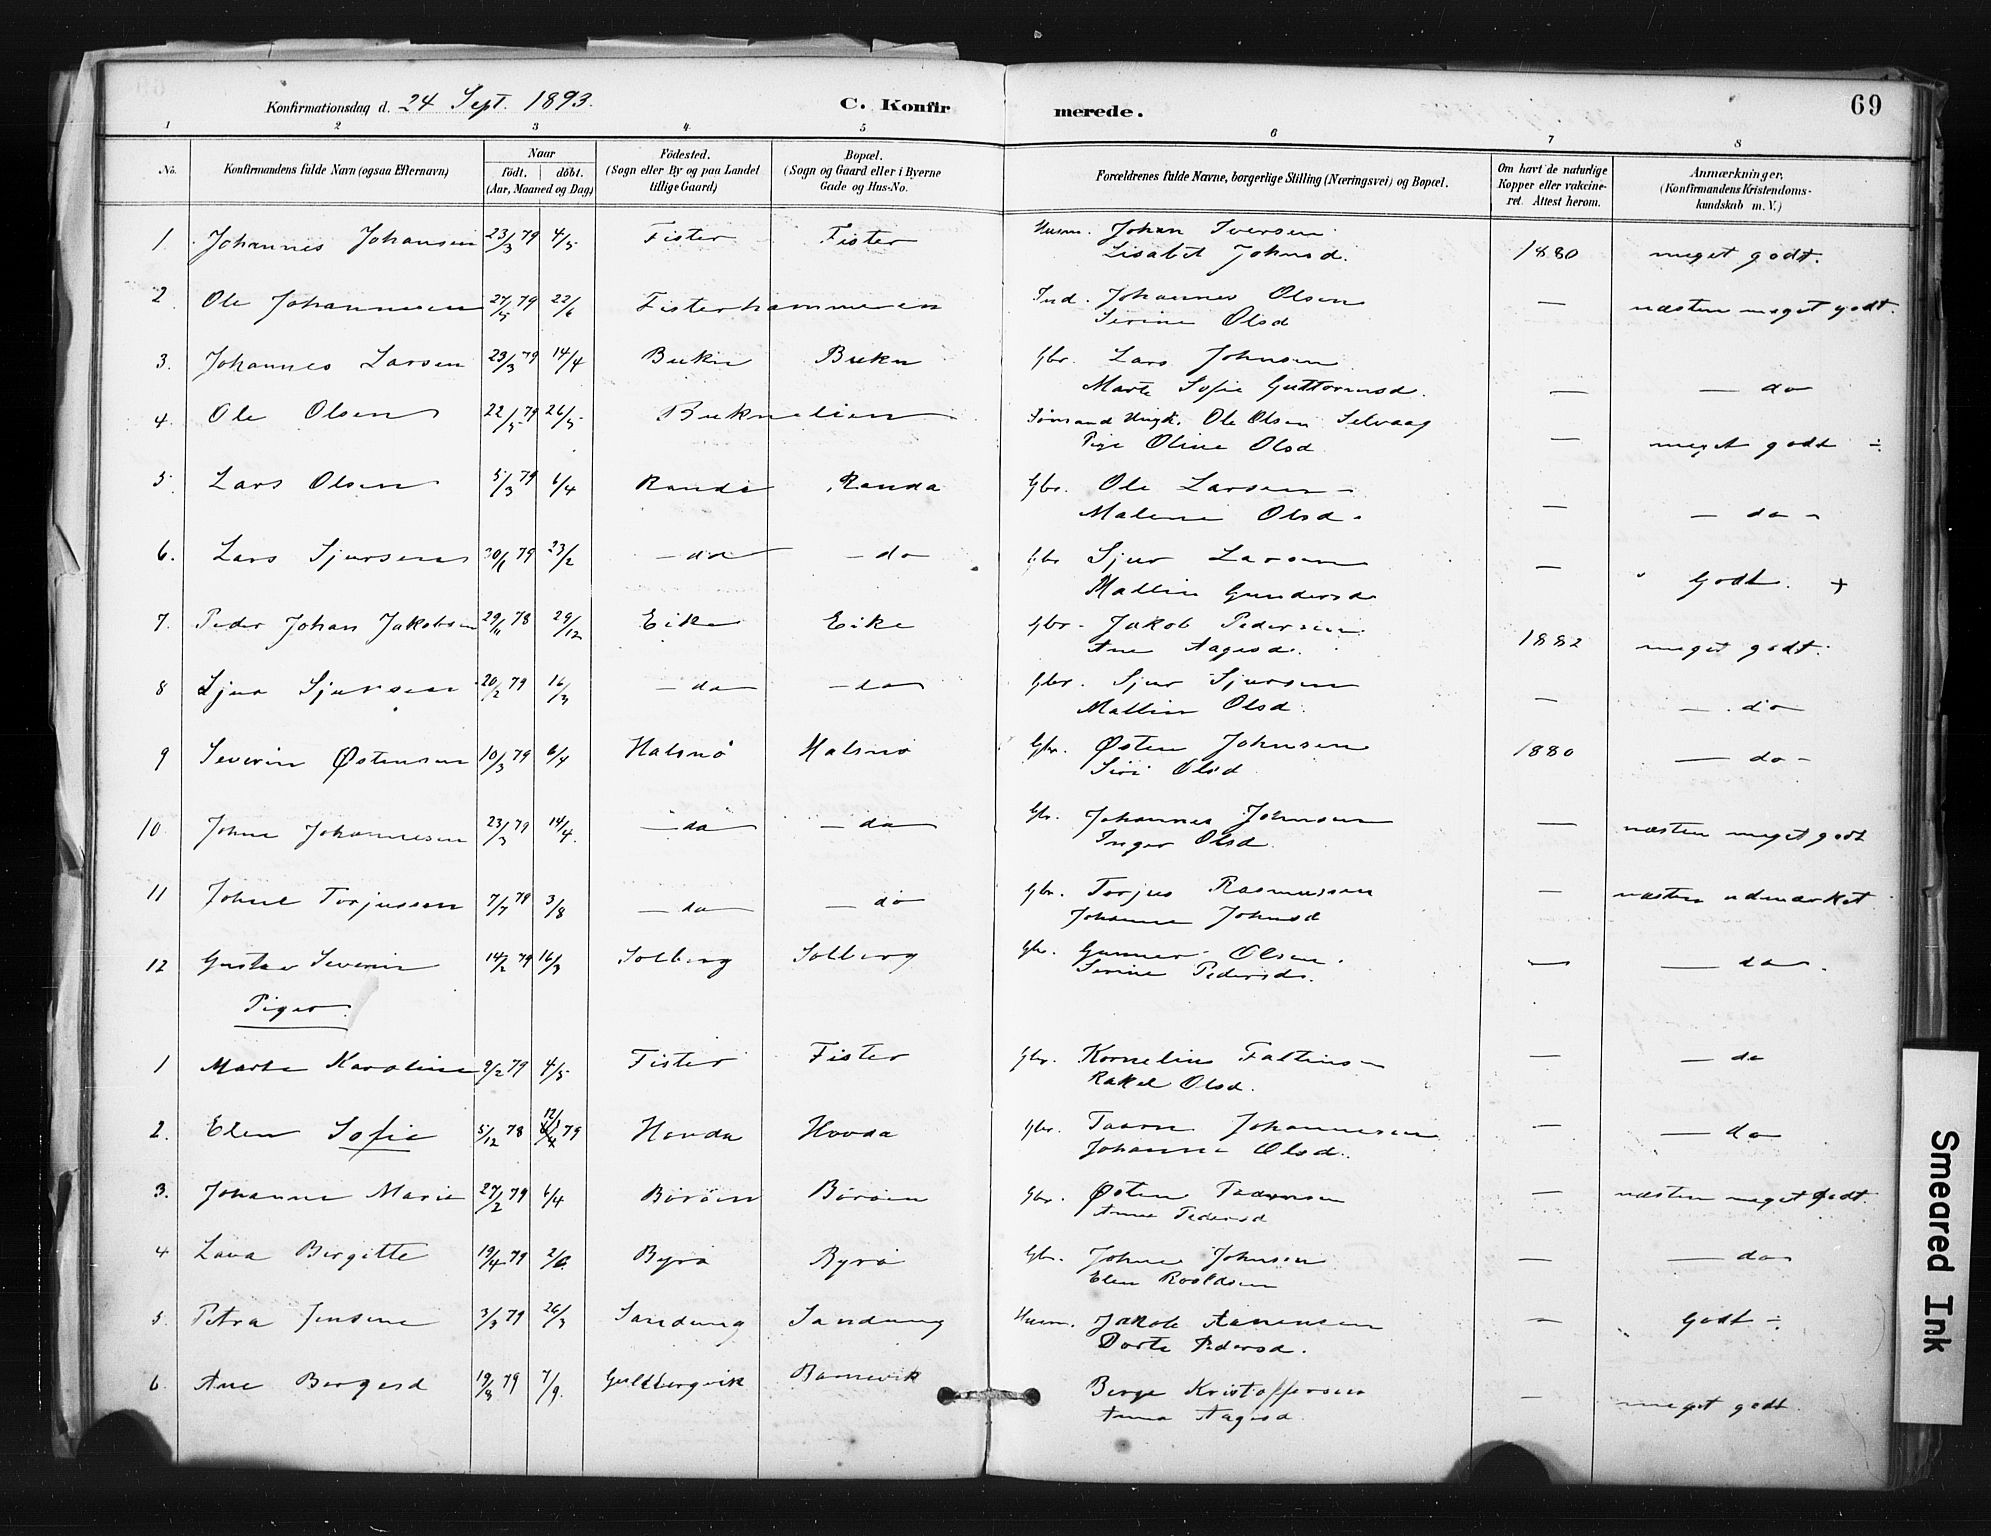 Konfirmationsdag d. 24 Sept. 1893. C. Konfirmerede. 69
1 2 3 4 5 6 7 8
No. Konfirmandens fulde Navn (ogsaa Efternavn) Naar født. døbt. (Aar, Maaned og Dag) Fødested. (Sogn eller By og paa Landet tillige Gaard) Bopæl. (Sogn og Gaard eller i Byerne Gade og Hus-No. Forældrenes fulde Navne, borgerlige Stilling (Næringsvei) og Bopæl. Om havt de naturlige Kopper eller vakcineret. Attest herom. Anmærkninger. (Konfirmandens Kristendomskundskab m. V.)
1. Johannes Johansen 23/3 79 4/5 Fister Fister Husm. Johan Iversen
Lisabet Johnsd. 1880 meget godt.
2 Ole Johannesen 27/5 79 22/6 Fisterhammeren Ind. Johannes Olsen — næsten meget godt.
Serine Olsd
3. Johannes Larsen 23/3 79 14/4 Bukn Bukn Gbr. Lars Johnsen
Marte Sofie Guttormsd. — — do
4. Ole Olsen 22/5 79 26/5 Buknelien Ungk. Ole Olsen Selvaag
Pige Oline Olsd — meget godt ÷
5. Lars Olsen 5/3 79 6/4 Randa Randa Gbr. Ole Larsen
Malene Olsd. — — do —
6. Lars Sjursen 30/1 79 23/2 — do — do Gbr Sjur Larsen
Mallin Gundersd — Godt. +
7. Peder Johan Jakobsen 29/11 78 29/12 Eike Eike Gbr. Jakob Pedersen
Ane Aagesd. 1882 meget godt.
8 Sjur Sjursen 20/2 79 16/3 — do — do Gbr. Sjur Sjursen
Mallin Olsd. — — do
9 Severin Østensen 10/3 79 6/4 Halsnø Halsnø Gbr. Østen Johnsen 1880 — do —
Siri Olsd
10. Johne Johannesen 23/3 79 14/4. — do — do Gbr. Johannes Johnsen — næsten meget godt
Inger Olsd.
11 Johne Torjussen 7/7 79 3/8 — do — do Gbr. Torjus Rasmussen — næsten udmærket
Johanne Johnsd
12 Gustav Severin 14/2 79 16/3 Solberg Solberg Gbr. Gunnar Olsen. — — do —.
Serine Pedersd.
Piger.
1 Marta Karoline 9/2 79 4/5 Fister Fister Gbr. Kornelius Faltins — — do
Rakel Olsd.
2. Elen Sofie 5/12 78 12/ 79 Hovda Hovda Gbr. Taarn Johannesen — — do
Johanne Olsd.
3. Johanne Marie 27/2 79 6/4 Børøen Børøen Gbr. Østen — næsten meget godt.
Anne Pedersd
4 Lava Birgitte 19/4 79 2/6. Byrø Byrø Gbr. Johne Johnsen — — do
Elen
5. Petra Jensine 3/3 79 26/3 Sandung Sandung Husm. Jakob Aanensen — Godt ÷
Dorte Pedersd.
6. Ane Bergesd 19/8 79 7/9. Guldbergvik Barnevik Berge Kristoffersen — meget godt.
Anna Aagesd.
Smeared Ink